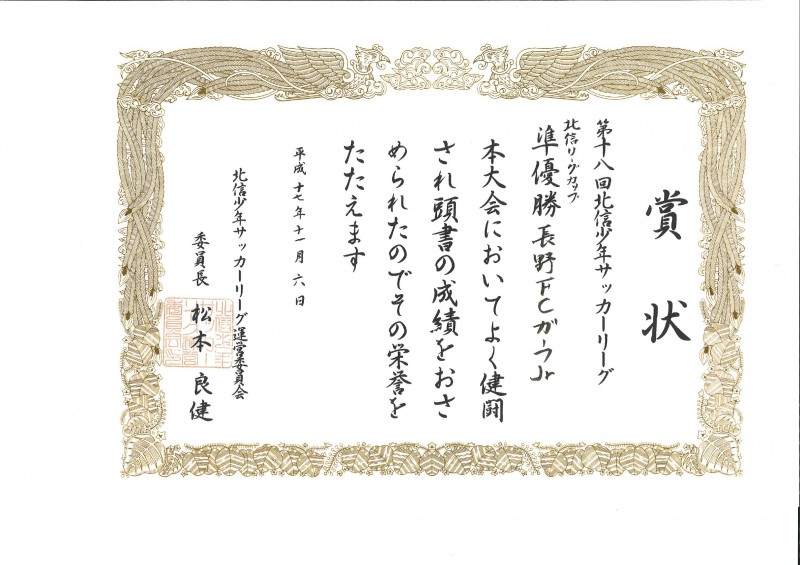 賞状
第十八回北信少年サッカーリーグ
北信リーグカップ
準優勝 長野FCガーフJr
本大会においてよく健闘
され頭書の成績をおさ
められたのでその栄誉を
たたえます
平成十七年十一月六日
北信少年サッカーリーグ運営委員会
委員長 松本良健